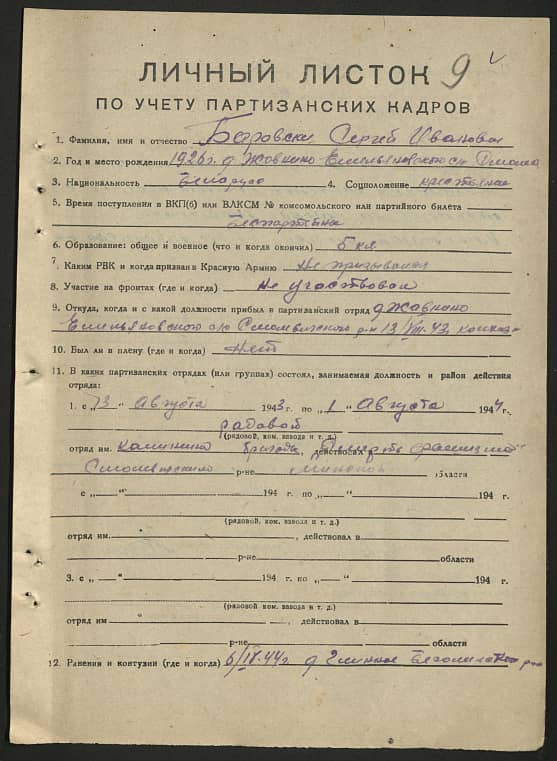 ЛИЧНЫЙ ЛИСТОК 9
ПО УЧЕТУ ПАРТИЗАНСКИХ КАДРОВ
1. Фамилия, имя и отчество Сергей Иванович
2. Год и место рождения 1926 г. д. Жовнино
3. Национальность Беларус 4. Соцположение
5. Время поступления в ВКП(б) или ВЛКСМ № комсомольского или партийного билета
Беспартейны
6. Образование: общее и военное (что и когда окончил) 5 кл
7. Каким РВК и когда призван в Красную Армию Не призывался
8. Участие на фронтах (где и когда) Не участвовал
9. Откуда, когда и с какой должности прибыл в партизанский отряд д Жовнино
с/с 13/VIII-43г
10. Был ли в плену (где и когда) Нет
11. В каких партизанских отрядах (или группах) состоял, занимаемая должность и район действия
отряда:
1. с „13“ Августа 1943 г. по „1“ Августа 1944 г.,
радовой
(рядовой, ком. взвода и т. д.)
отряд им. Калинина бригады, действовал в
р-не области
с „ “ 194 г. по „ “ 194 г.
(рядовой, ком. взвода и т. д.)
отряд им. , действовал в
р-не области
3. с „ “ 194 г. по „ “ 194 г.
(рядовой, ком. взвода и т. д.)
отряд им , действовал в
р-не области
12. Ранения и контузии (где и когда) 6/IV-44г. д